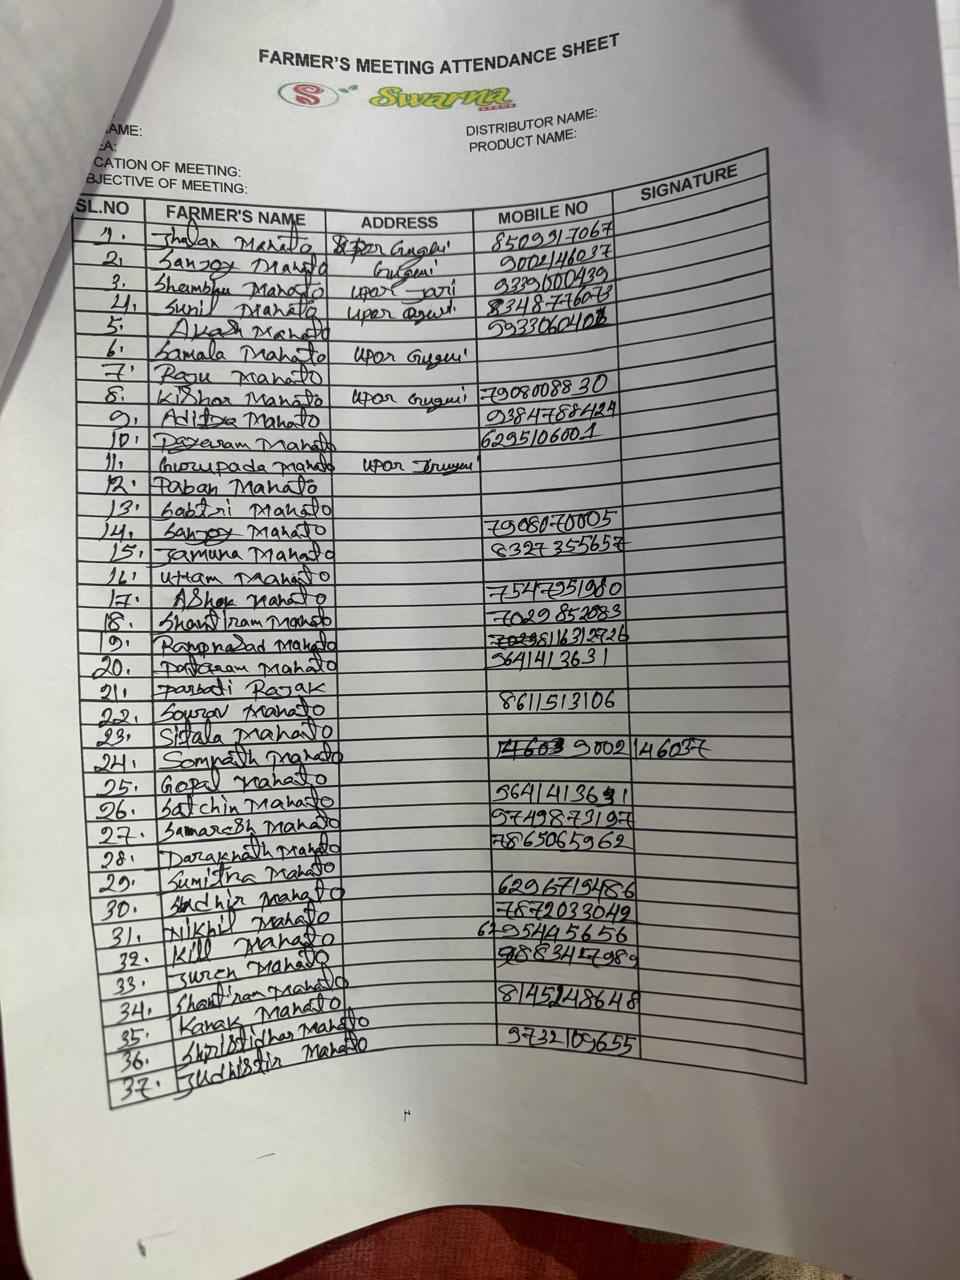 FARMER'S MEETING ATTENDANCE SHEET
S Swarna
AME: DISTRIBUTOR NAME:
EA: PRODUCT NAME:
CATION OF MEETING:
BJECTIVE OF MEETING:
SL.NO FARMER'S NAME ADDRESS MOBILE NO SIGNATURE
1. Jhalan Mahato Upor Gugui 8509317067
2. Sanjoy Mahato Gugui 9002146037
3. Shambhu Mahato Upor 9339600439
4. Sunil Mahato Upor 8348776073
5. Akash Mahato
6. Samala Mahato Upor Gugui
7. Raju Mahato
8. Kishor Mahato Upor Gugui 7908008830
9. Aditya Mahato 9384788424
10. Dayaram Mahato 6295106001
11. Gurupada Mahato Upor
12. Paban Mahato
13. Sabtri Mahato
14. Sanjoy Mahato 7908070005
15. Jamuna Mahato 8327355657
16. Uttam Mahato
17. Ashok Mahato 7547951980
18. Shantiram Mahato 7029852083
19. Ramprasad Mahato
20. Dayaram Mahato 9641413631
21. Parbati Rajak
22. Sourav Mahato 8611513106
23. Sitala Mahato
24. Somnath Mahato 9002146037
25. Gopal Mahato
26. Satchin Mahato
27. Samaresh Mahato 9749873197
28. Daraknath Mahato 7865065962
29. Sumitra Mahato
30. Sudhir Mahato 6296719486
31. Nikhil Mahato 7872033042
32. Kill Mahato 6295445656
33. Suren Mahato
34. Shantiram Mahato
35. Kanak Mahato 8145248648
36. Shristidhar Mahato
37. Judhistir Mahato 9732109655